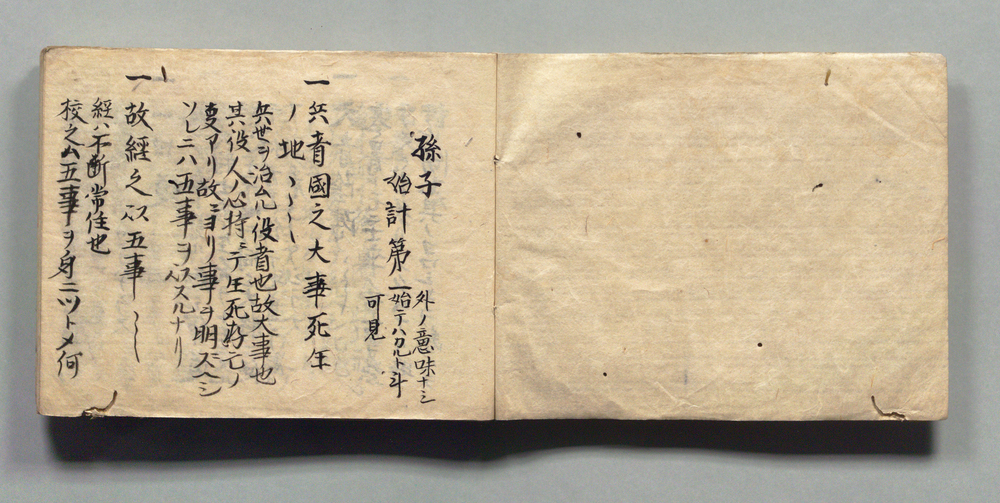 孫子
始計第一
外ノ意味ナシ
始テハカルト斗
可見
一兵者國之大事死生
ノ地〻〻〻
兵ハ世ヲ治ムル役者也故大事也
其役人ノ心持ニテ生死存亡ノ
変アリ故ニヨリ事ヲ明ズヘシ
ソレニハ五事ヲ以スルナリ
一故經之以五事〻〻
經ハ不断常住也
校之ハ五事ヲ身ニツトメ何